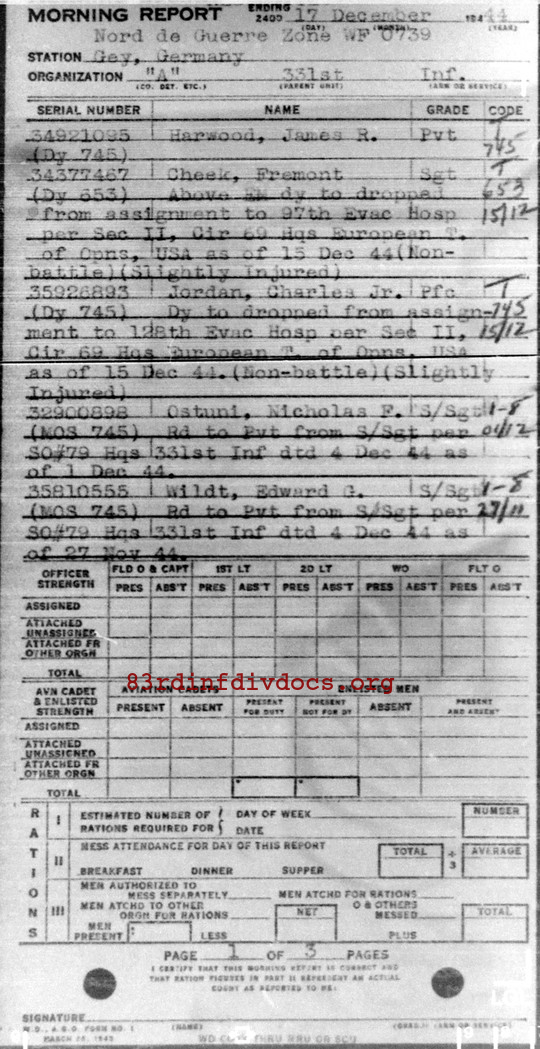 MORNING REPORT ENDING 2400 17 December 1944
(DAY) (MONTH) (YEAR)
Nord de Guerre Zone WF 0739
STATION Gey, Germany
ORGANIZATION "A" 331st Inf.
(CO. DET. ETC.) (PARENT UNIT) (ARM OR SERVICE)
SERIAL NUMBER NAME GRADE CODE
34921095 Harwood, James R. Pvt T
(Dy 745) 745
34377467 Cheek, Fremont Sgt T
(Dy 653) Above EM dy to dropped 653
from assignment to 97th Evac Hosp 15/12
per Sec II, Cir 69 Hqs European T.
of Opns, USA as of 15 Dec 44(Non-
battle)(Slightly Injured)
35926893 Jordan, Charles Jr. Pfc T
(Dy 745) Dy to dropped from assign- 745
ment to 128th Evac Hosp per Sec II, 15/12
Cir 69 Hqs European T. of Opns, USA
as of 15 Dec 44.(Non-battle)(Slightly
Injured)
32900898 Ostuni, Nicholas F. S/Sgt 1-8
(MOS 745) Rd to Pvt from S/Sgt per 01/12
SO#79 Hqs 331st Inf dtd 4 Dec 44 as
of 1 Dec 44.
35810555 Wildt, Edward G. S/Sgt 1-8
(MOS 745) Rd to Pvt from S/Sgt per 27/11
SO#79 Hqs 331st Inf dtd 4 Dec 44 as
of 27 Nov 44.
OFFICER STRENGTH FLD O & CAPT 1ST LT 2D LT WO FLT O
PRES ABS'T PRES ABS'T PRES ABS'T PRES ABS'T PRES ABS'T
ASSIGNED
ATTACHED UNASSIGNED
ATTACHED FR OTHER ORGN
TOTAL
83rdinfdivdocs.org
AVN CADET & ENLISTED STRENGTH AVIATION CADETS ENLISTED MEN
PRESENT ABSENT PRESENT FOR DUTY PRESENT NOT FOR DY ABSENT PRESENT AND ABSENT
ASSIGNED
ATTACHED UNASSIGNED
ATTACHED FR OTHER ORGN
TOTAL
RATIONS
I ESTIMATED NUMBER OF RATIONS REQUIRED FOR DAY OF WEEK DATE NUMBER
II MESS ATTENDANCE FOR DAY OF THIS REPORT TOTAL ÷ 3 AVERAGE
BREAKFAST DINNER SUPPER
III MEN AUTHORIZED TO MESS SEPARATELY MEN ATCHD FOR RATIONS
MEN ATCHD TO OTHER ORGN FOR RATIONS NET O & OTHERS MESSED TOTAL
MEN PRESENT LESS PLUS
PAGE 1 OF 3 PAGES
I CERTIFY THAT THIS MORNING REPORT IS CORRECT AND
THAT RATION FIGURES IN PART II REPRESENT AN ACTUAL
COUNT AS REPORTED TO ME:
SIGNATURE
W.D., A.G.O. FORM NO. 1 (NAME) (GRADE) (ARM OR SERVICE)
MARCH 28, 1943 WD COPY THRU MRU OR SCU